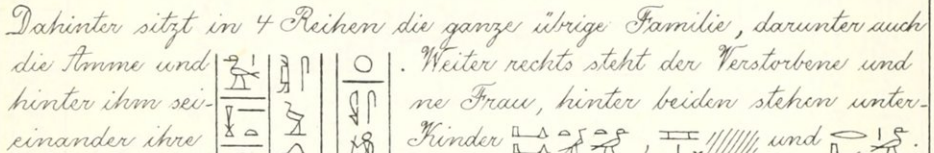 Dahinter sitzt in 4 Reihen die ganze übrige Familie, darunter auch
die Amme und . Weiter rechts steht der Verstorbene und
hinter ihm sei- ne Frau, hinter beiden stehen unter-
einander ihre Kinder , und .